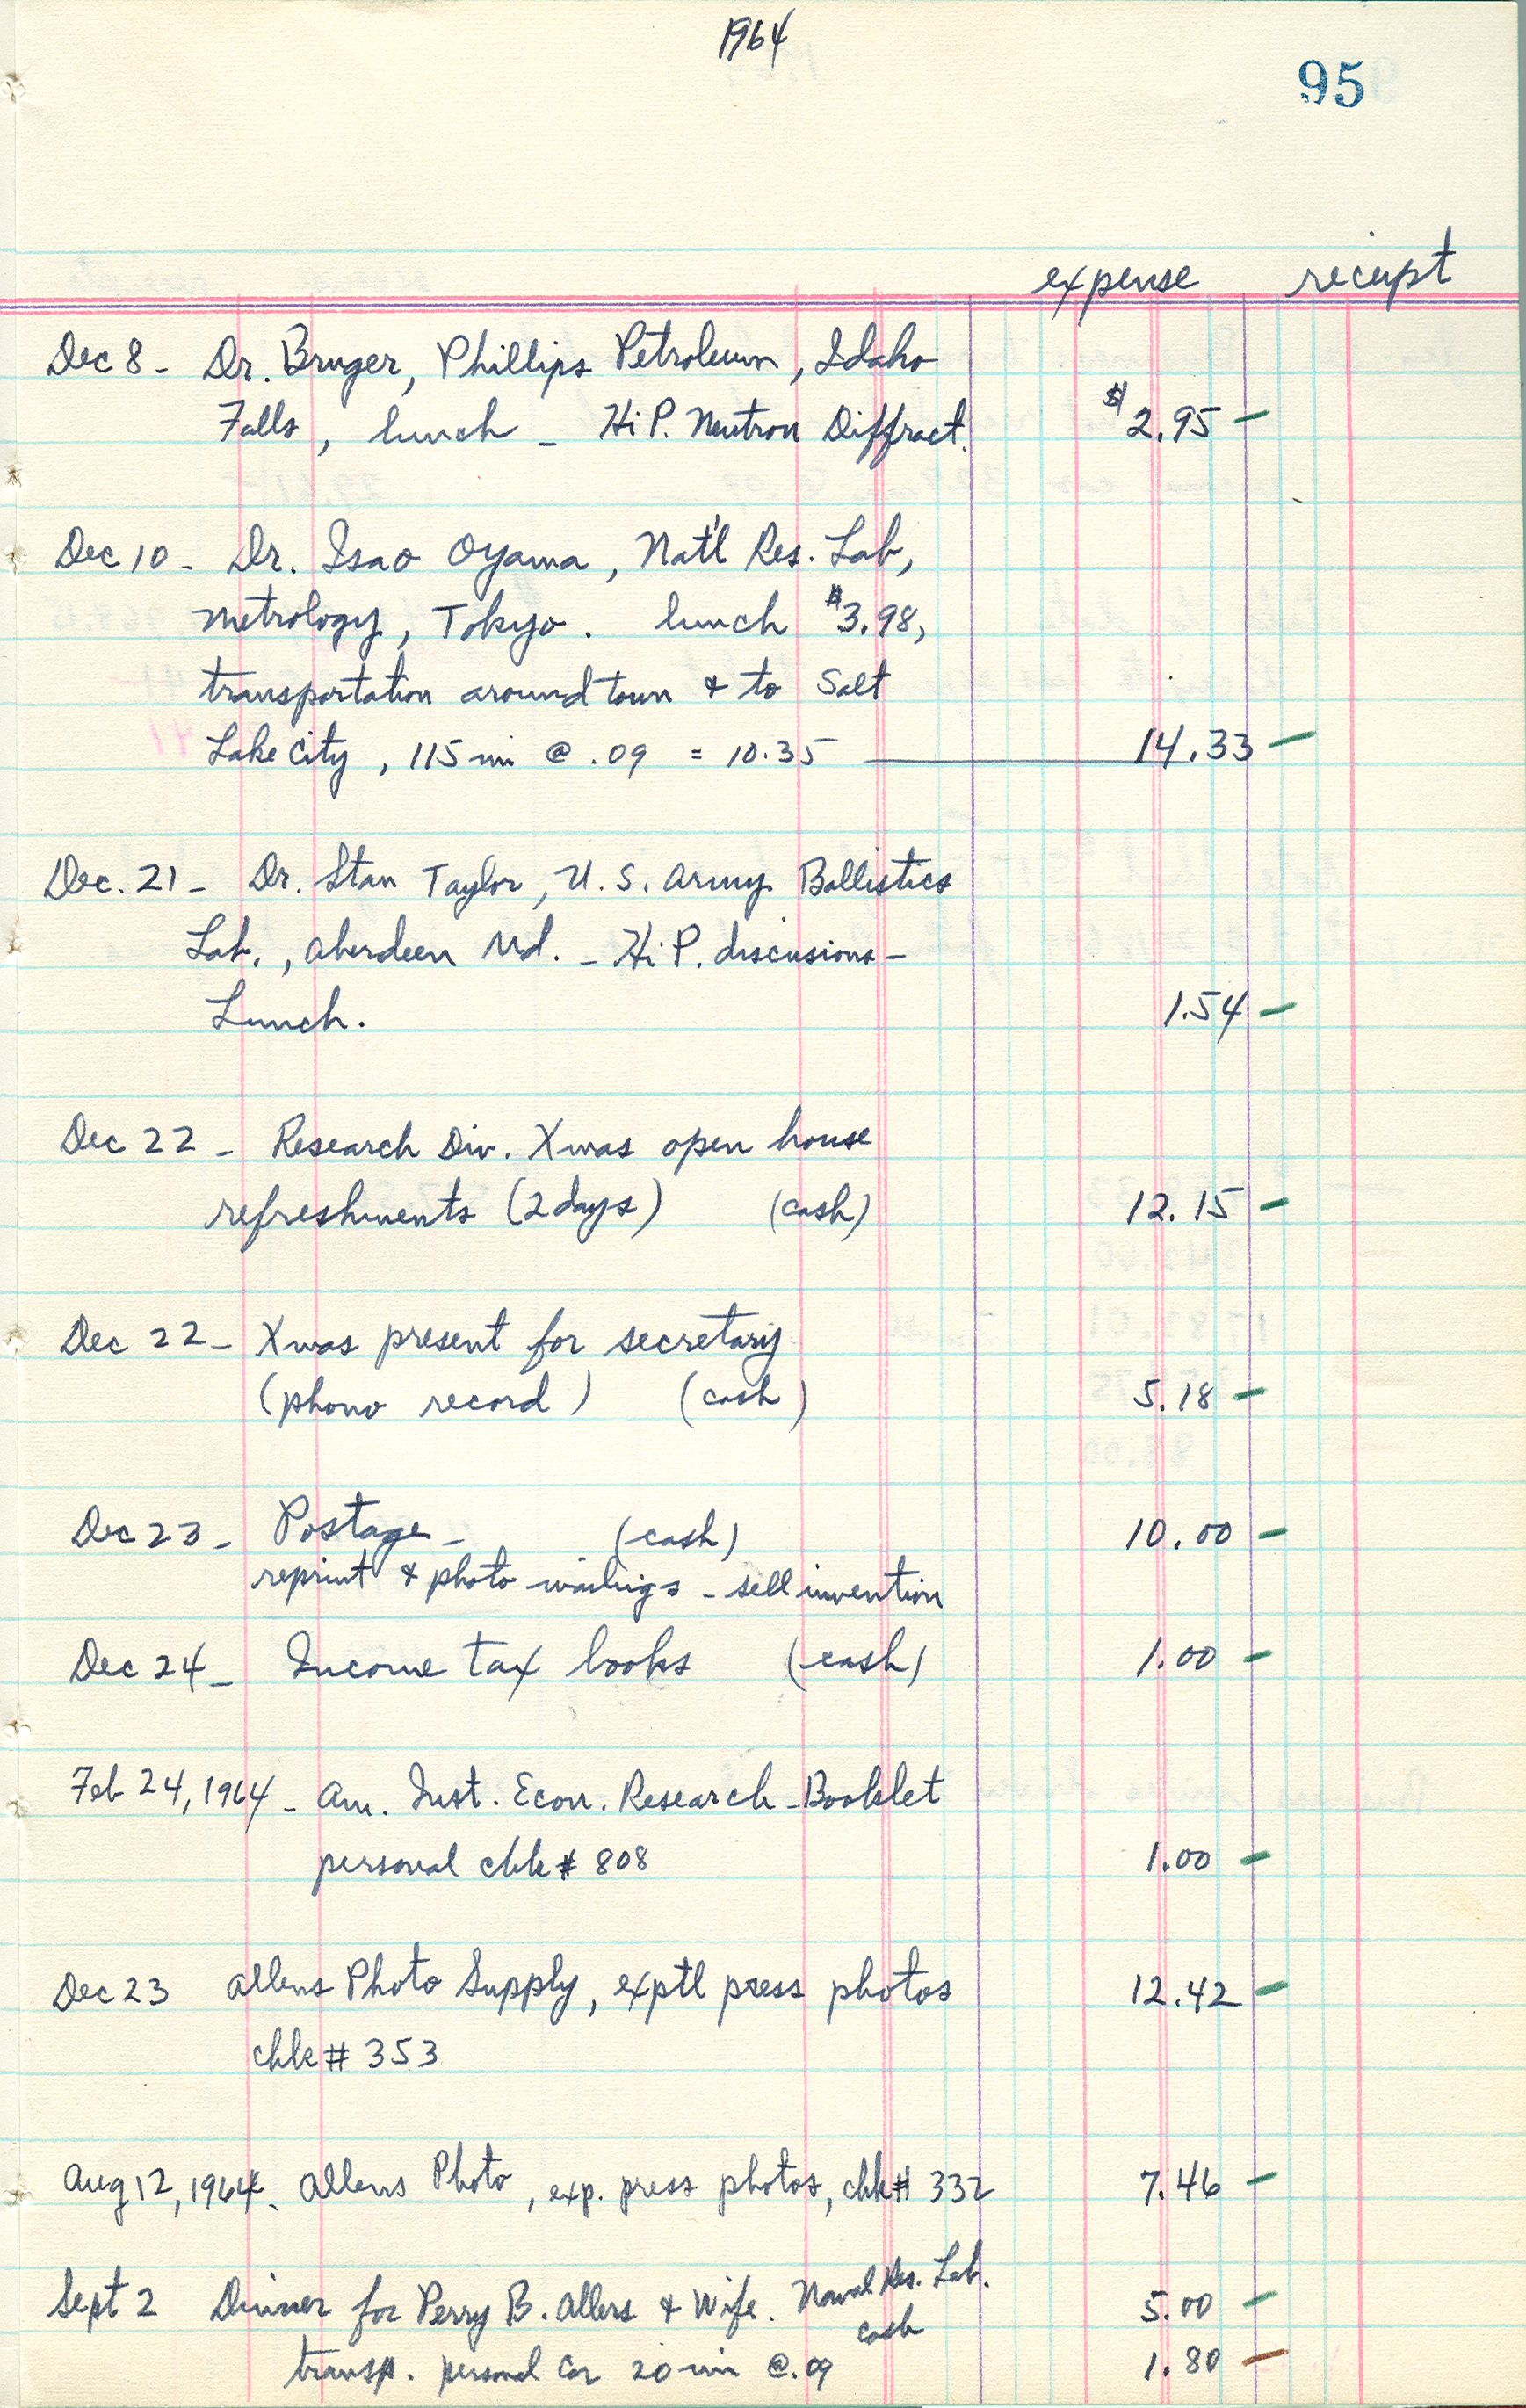 1964
95
expense receipt
Dec 8 - Dr. Bruger, Phillips Petroleum, Idaho
Falls, lunch - Hi P. Neutron Diffract. $2.95 -
Dec 10 - Dr. Isao Oyama, Nat'l Res. Lab,
Metrology, Tokyo. lunch $3.98,
transportation around town & to Salt
Lake City, 115 mi @ .09 = 10.35 14.33 -
Dec. 21 - Dr. Stan Taylor, U.S. Army Ballistics
Lab., Aberdeen Md. - Hi P. discusions -
Lunch. 1.54 -
Dec 22 - Research Div. Xmas open house
refreshments (2 days) (cash) 12.15 -
Dec 22 - Xmas present for secretary
(phono record) (cash) 5.18 -
Dec 23 - Postage - (cash) 10.00 -
reprint & photo mailings - sell invention
Dec 24 - Income tax books (cash) 1.00 -
Feb 24, 1964 - Am. Inst. Econ. Research - Booklet
personal chk # 808 1.00 -
Dec 23 Allens Photo Supply, exptl press photos 12.42 -
chk # 353
Aug 12, 1964. Allens Photo, exp. press photos, chk # 332 7.46 -
Sept 2 Dinner for Perry B. Allers & Wife. Naval Res. Lab. 5.00 -
cash
transp. personal car 20 mi @ .09 1.80 -